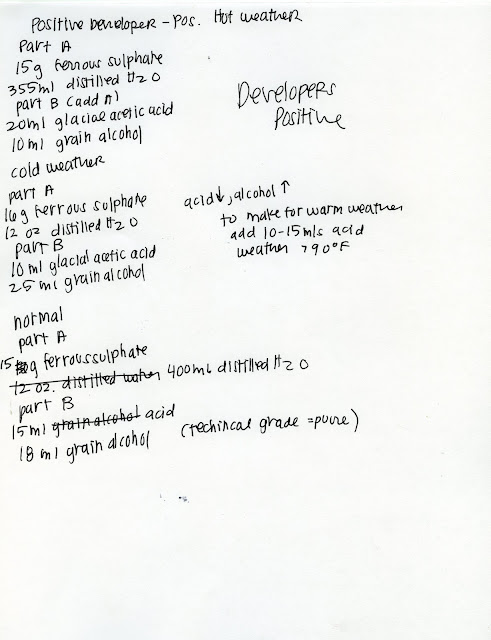 Positive Developer - Pos. Hot weather
Part A
15g ferrous sulphate
355ml distilled H2O
part B (add A)
20ml glaciae acetic acid
10 ml grain alcohol
cold weather
part A
16g ferrous sulphate
12 oz distilled H2O
part B
10 ml glacial acetic acid
25 ml grain alcohol
normal
part A
15 g ferrous sulphate
12 oz. distilled water 400ml distilled H2O
part B
15 ml grain alcohol acid
18 ml grain alcohol (techincal grade = pure)
Developers
Positive
acid↓, alcohol ↑
to make for warm weather
add 10-15mls acid
weather >90°F